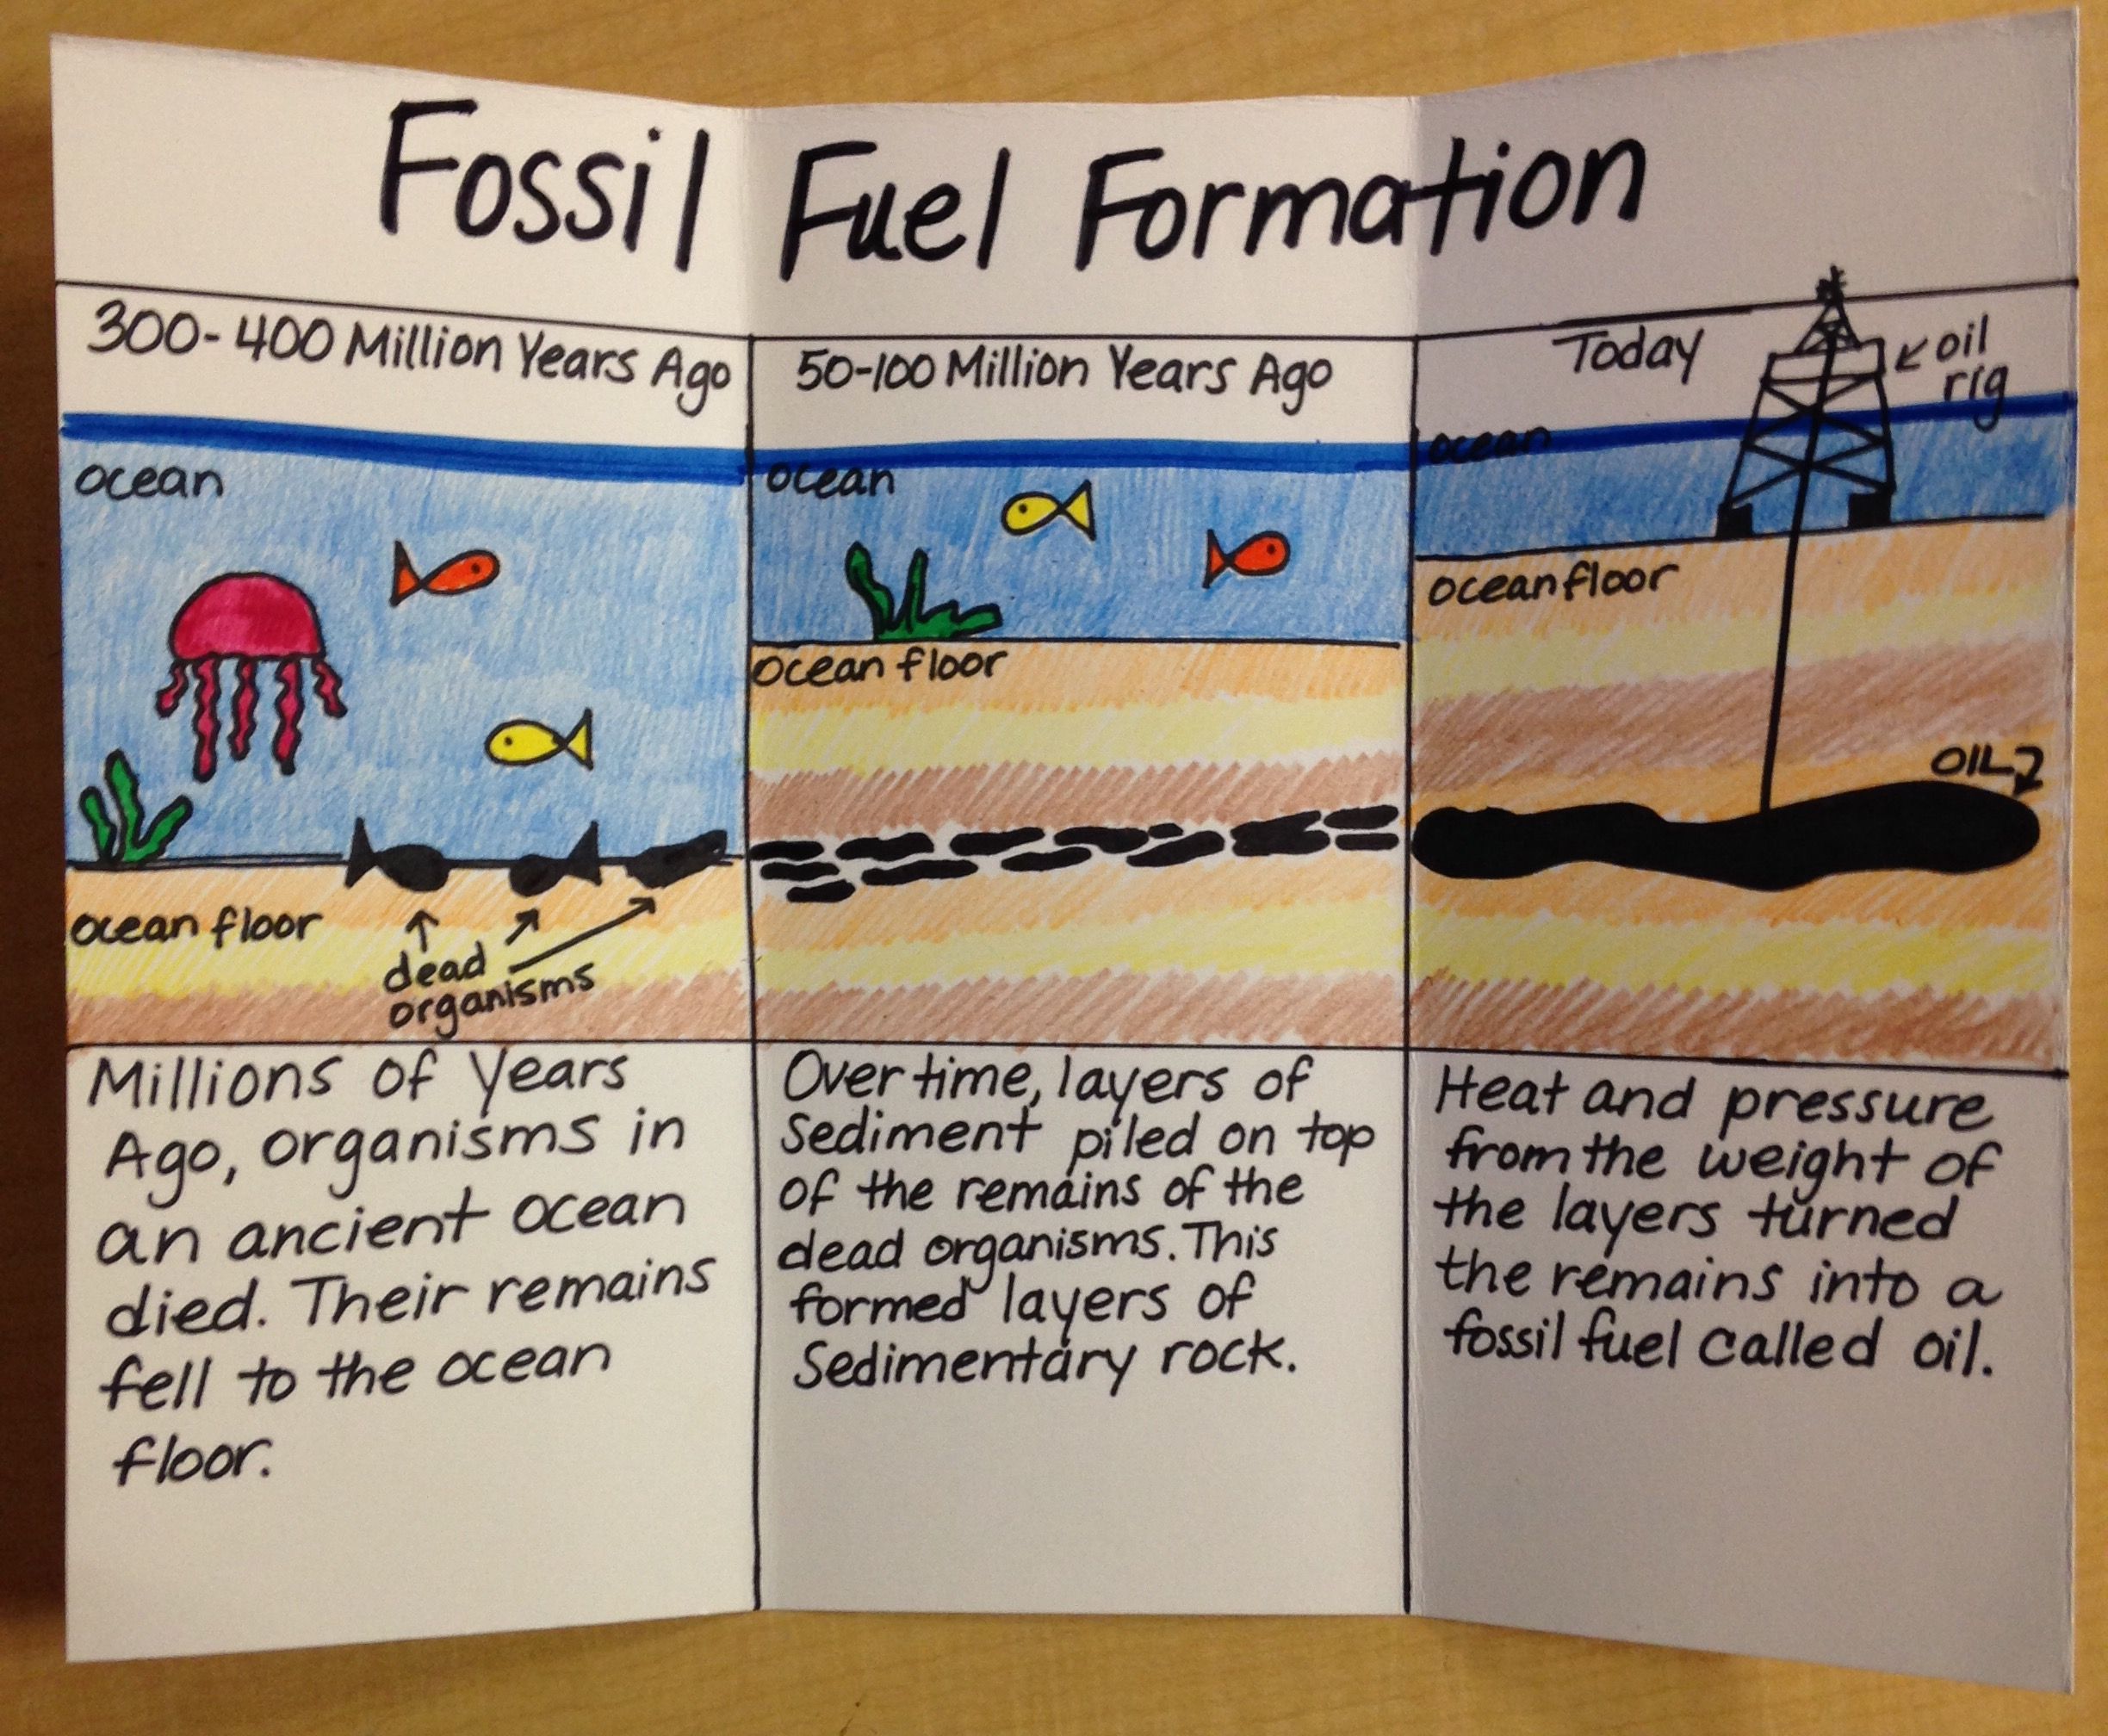 Fossil Fuel Formation
300-400 Million Years Ago
ocean
ocean floor
dead
organisms
Millions of Years
Ago, organisms in
an ancient ocean
died. Their remains
fell to the ocean
floor.
50-100 Million Years Ago
ocean
ocean floor
Over time, layers of
Sediment piled on top
of the remains of the
dead organisms. This
formed layers of
Sedimentary rock.
Today
oil
rig
ocean
ocean floor
OIL
Heat and pressure
from the weight of
the layers turned
the remains into a
fossil fuel called oil.